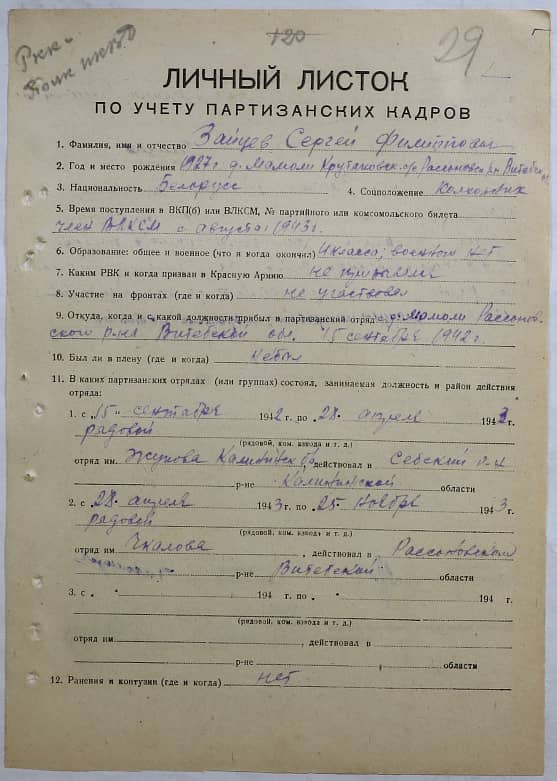 120
29
РКК
ЛИЧНЫЙ ЛИСТОК
ПО УЧЕТУ ПАРТИЗАНСКИХ КАДРОВ
1. Фамилия, имя и отчество Зайцев Сергей Филиппович
2. Год и место рождения 1927 г. д. Мамоли
3. Национальность Белорусс 4. Соцположение Колхозник
5. Время поступления в ВКП(б) или ВЛКСМ, № партийного или комсомольского билета
член ВЛКСМ с августа 1943 г.
6. Образование: общее и военное (что и когда окончил) 4 класса, военного нет
7. Каким РВК и когда призван в Красную Армию не призывался
8. Участие на фронтах (где и когда) не участвовал
9. Откуда, когда и с какой должности прибыл в партизанский отряд с д. Мамоли Россонов-
ского р-на Витебской обл. 15 сентября 1942 г.
10. Был ли в плену (где и когда) не был
11. В каких партизанских отрядах (или группах) состоял, занимаемая должность и район действия
отряда:
1. с „15“ сентября 1942 г. по „28“ апреля 1943 г.
рядовой
(рядовой, ком. взвода и т. д.)
отряд им. Жукова Калининск , действовал в Себский р-н
р-не Калининской области
2. с „28“ апреля 1943 г. по „25“ ноября 1943 г.
рядовой
(рядовой, ком. взвода и т. д.)
отряд им Чкалова , действовал в Россоновском
р-не Витебской области
3. с „ “ 194 г. по „ “ 194 г.
(рядовой, ком. взвода и т. д.)
отряд им. , действовал в
р-не области
12. Ранения и контузии (где и когда) нет